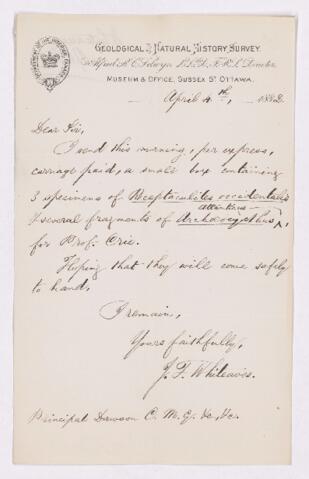 GEOLOGICAL AND NATURAL HISTORY SURVEY.
Alfred R. C. Selwyn, L.L.D., F.R.S., Director
MUSEUM & OFFICE, SUSSEX ST OTTAWA.
April 4th, 1882.
Dear Sir,
I send this morning, per express,
carriage paid, a small box containing
3 specimens of Receptaculites occidentalis
& several fragments of Archæocyathus ,
atlanticus
for Prof.
Hoping that they will come safely
to hand,
I remain,
Yours faithfully,
J. F. Whiteaves.
Principal Dawson C. M. G. &c. &c.